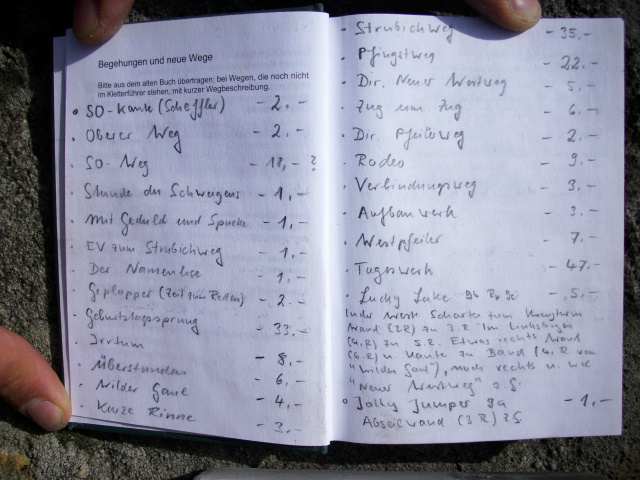 Begehungen und neue Wege
Bitte aus dem alten Buch übertragen; bei Wegen, die noch nicht
im Kletterführer stehen, mit kurzer Wegbeschreibung.
• SO-Kante (Scheffler) - 2.-
• Oberer Weg - 2.-
• SO-Weg - 18,- ?
• Stunde des Schweigens - 1,-
• Mit Geduld und Spucke - 1,-
• EV zum Strubichweg - 1,-
• Der Namenlose - 1,-
• Geplapper (Zeit zum Reden) - 2.-
• Geburtstagssprung - 33.-
• Irrtum - 8.-
• Überstunden - 6,-
• Wilder Gaul - 4,-
• Kurze Rinne - 3.-
• Strubichweg - 35.-
• Pfingstweg - 22.-
• Dir. Neuer Westweg - 5.-
• Zug um Zug - 6.-
• Dir. Pfeilerweg - 2.-
• Rodeo - 9.-
• Verbindungsweg - 3.-
• Aufbauwerk - 3.-
• Westpfeiler - 7.-
• Tageswerk - 47.-
• Lucky Luke 9b Rp 9c - 5.-
In der Westl. Scharte zum
Wand (2R) zu 3. R. Im Linksbogen
(4.R) zu 5.R. Etwas rechts Wand
(6.R) u. Kante zu Band (4.R von
"Wilder Gaul"), nach rechts u. wie
"Neuer Westweg" z. G.
• Jolly Jumper 9a - 1,-
Abseilwand (3 R) z G